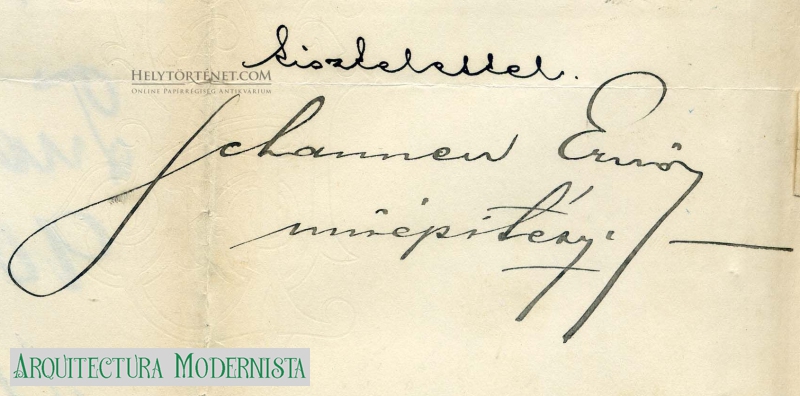 tisztelettel.
HELYTÖRTÉNET.COM
ONLINE PAPÍRRÉGISÉG ANTIKVÁRIUM
Schannen Ernő
műépítész.
ARQUITECTURA MODERNISTA